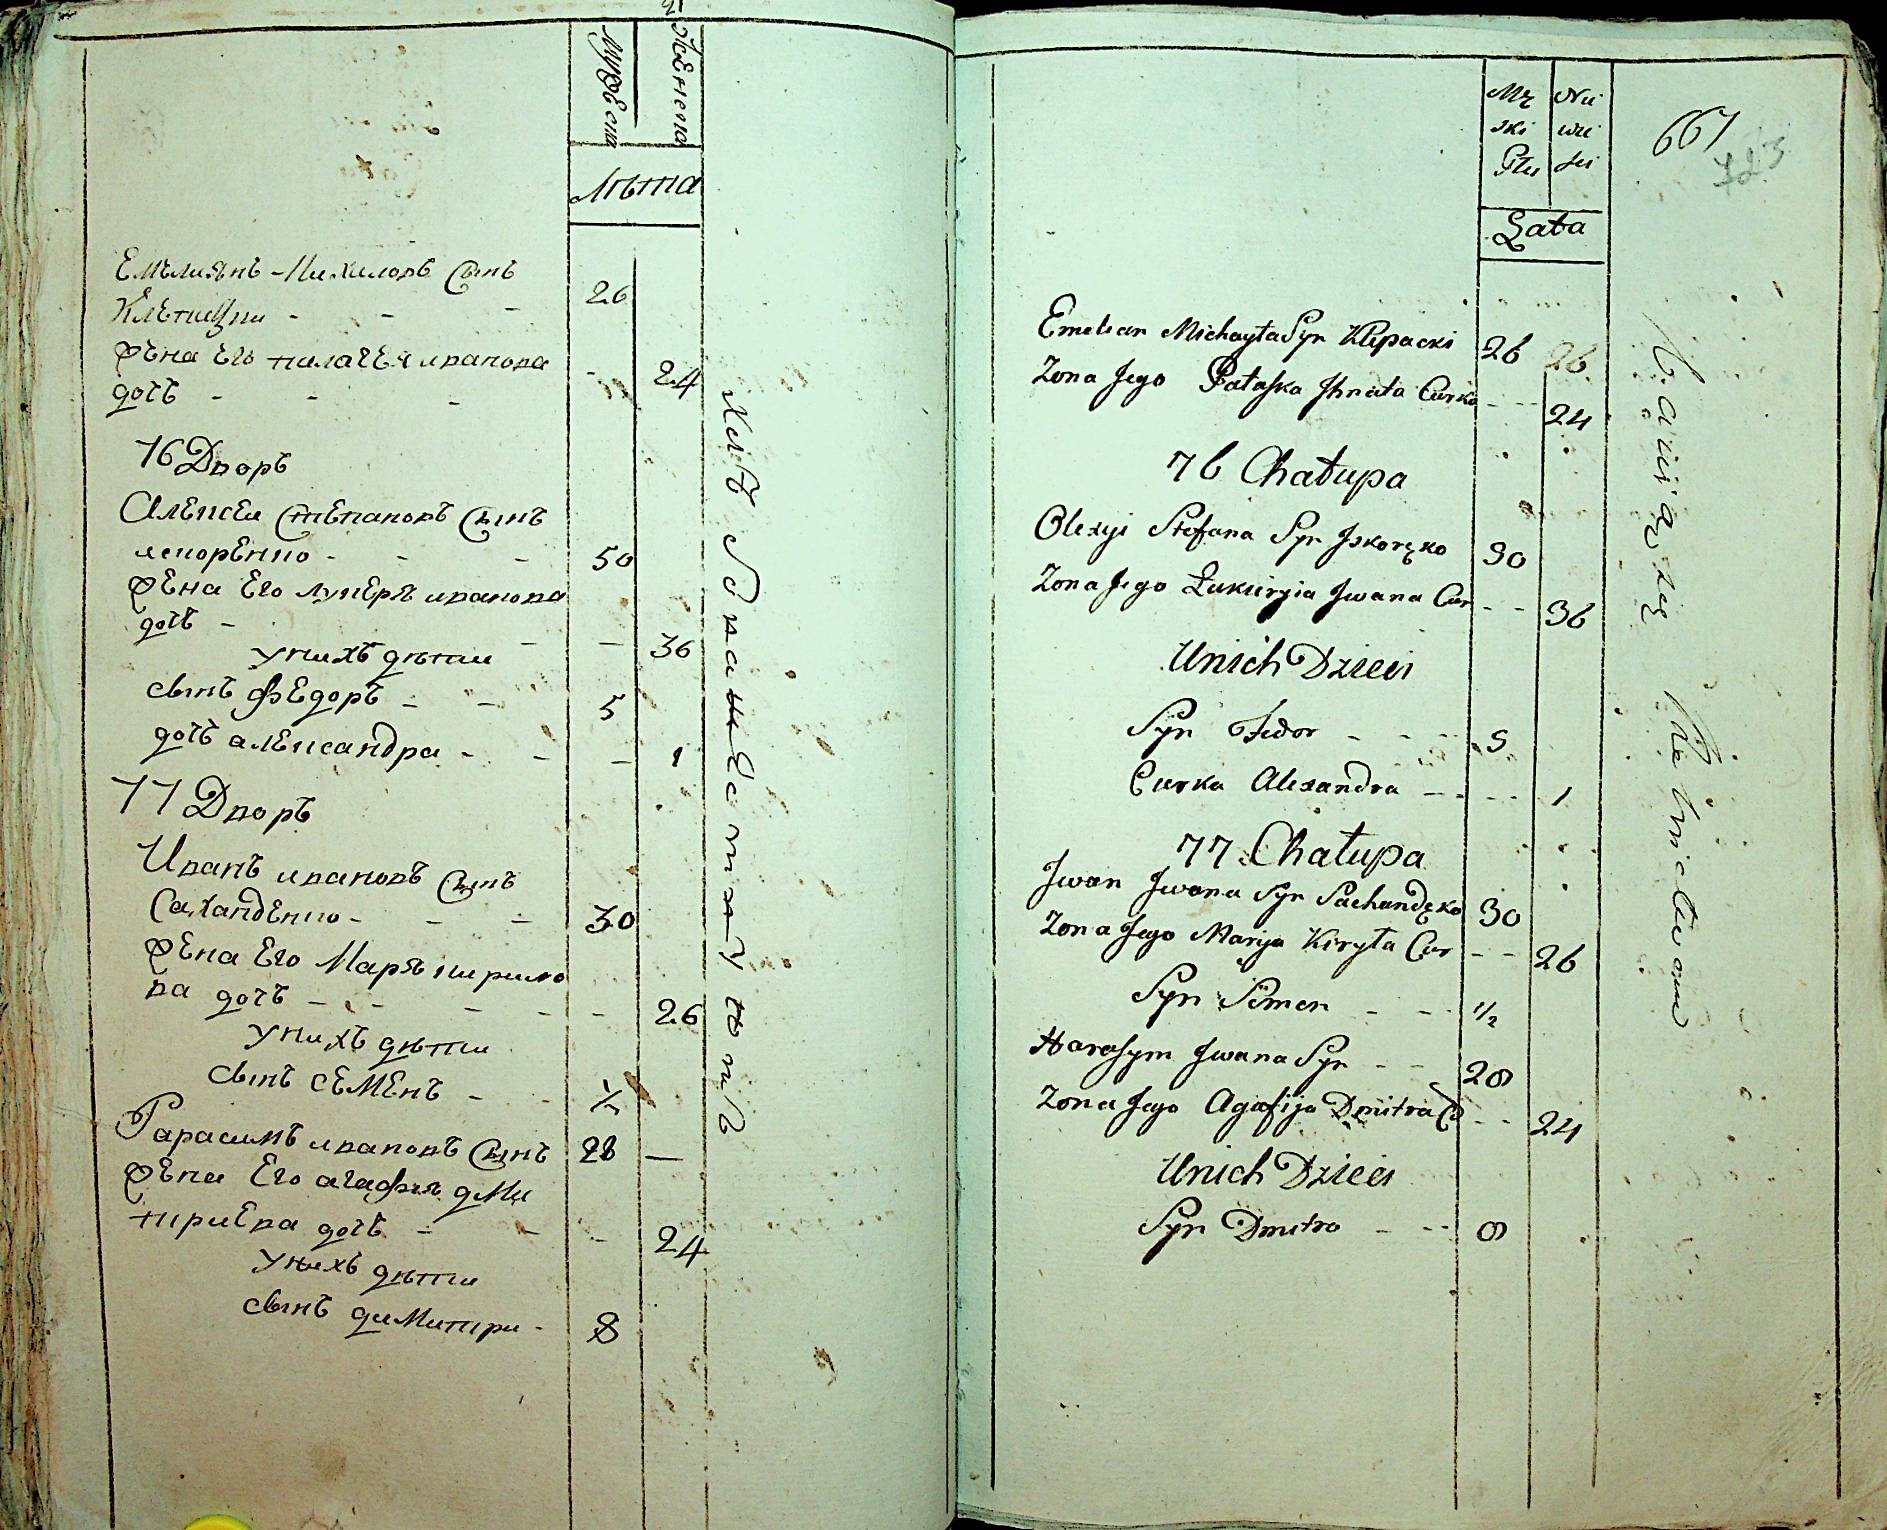 Мужеска
Женска
Лѣта
Емелиянъ Михаловъ Сынъ
26
Жена Его пилагея иванова
дочъ - - -
24
76 Дворъ
Алексеи Степановъ Сынъ
искоренко - - -
50
Жена Его лукеря иванова
дочъ -
36
У нихъ дѣти
сынъ федоръ - -
5
дочъ александра - -
1
77 Дворъ
Иванъ ивановъ Сынъ
Саханденко - - -
30
Жена Его Маря кирило
ва дочъ - - -
26
У нихъ дѣти
сынъ семенъ -
1/2
Гарасимъ ивановъ Сынъ
28 —
Жена Его агафия дми
триева дочъ -
24
У нихъ дѣти
сынъ димитри -
8
661
723
Mę Nie
ski wie
Płci
Lata
Emelian Michayła Syn Klepacki 26 26
Zona Jego Pałaska Ihnata Curka - - 24
76 Chałupa
Olexyi Stefana Syn Jskoręko 30
Zona Jego Łukiryia Jwana Cur - - 36
Unich Dzieci
Syn Fedor - - - 5
Curka Alexandra - - - 1
77 Chałupa
Jwan Jwana Syn Sachandęko 30
Zona Jego Maryja Kiryła Cur - - 26
Syn Semen - - 1/2
Harasym Jwana Syn - - 28
Zona Jego Agafija Dmitra C - - 24
Unich Dzieci
Syn Dmitro - - 8